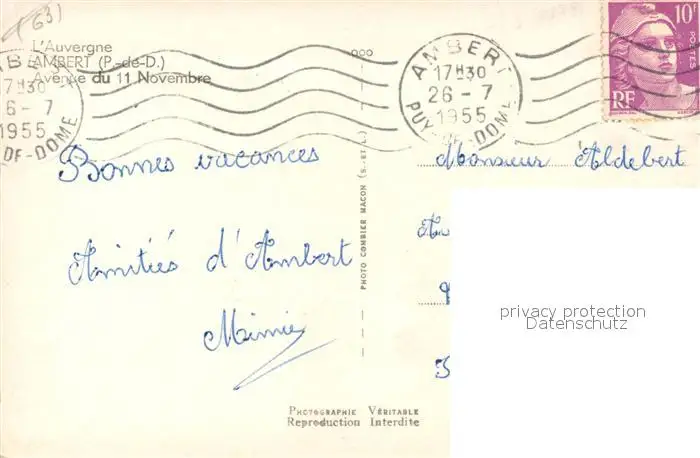 (63)
L'Auvergne
AMBERT (P.-de-D.)
Avenue du 11 Novembre
17H30
26-7
1955
DE-DOME
AMBERT
17H30
26-7
1955
PUY-DE-DOME
10F
POSTES
RF
Bonnes vacances
Amitiés d'Ambert
Mimie
PHOTO COMBIER MACON (S.-ET-L.)
Monsieur Aldebert
privacy protection
Datenschutz
PHOTOGRAPHIE VÉRITABLE
Reproduction Interdite